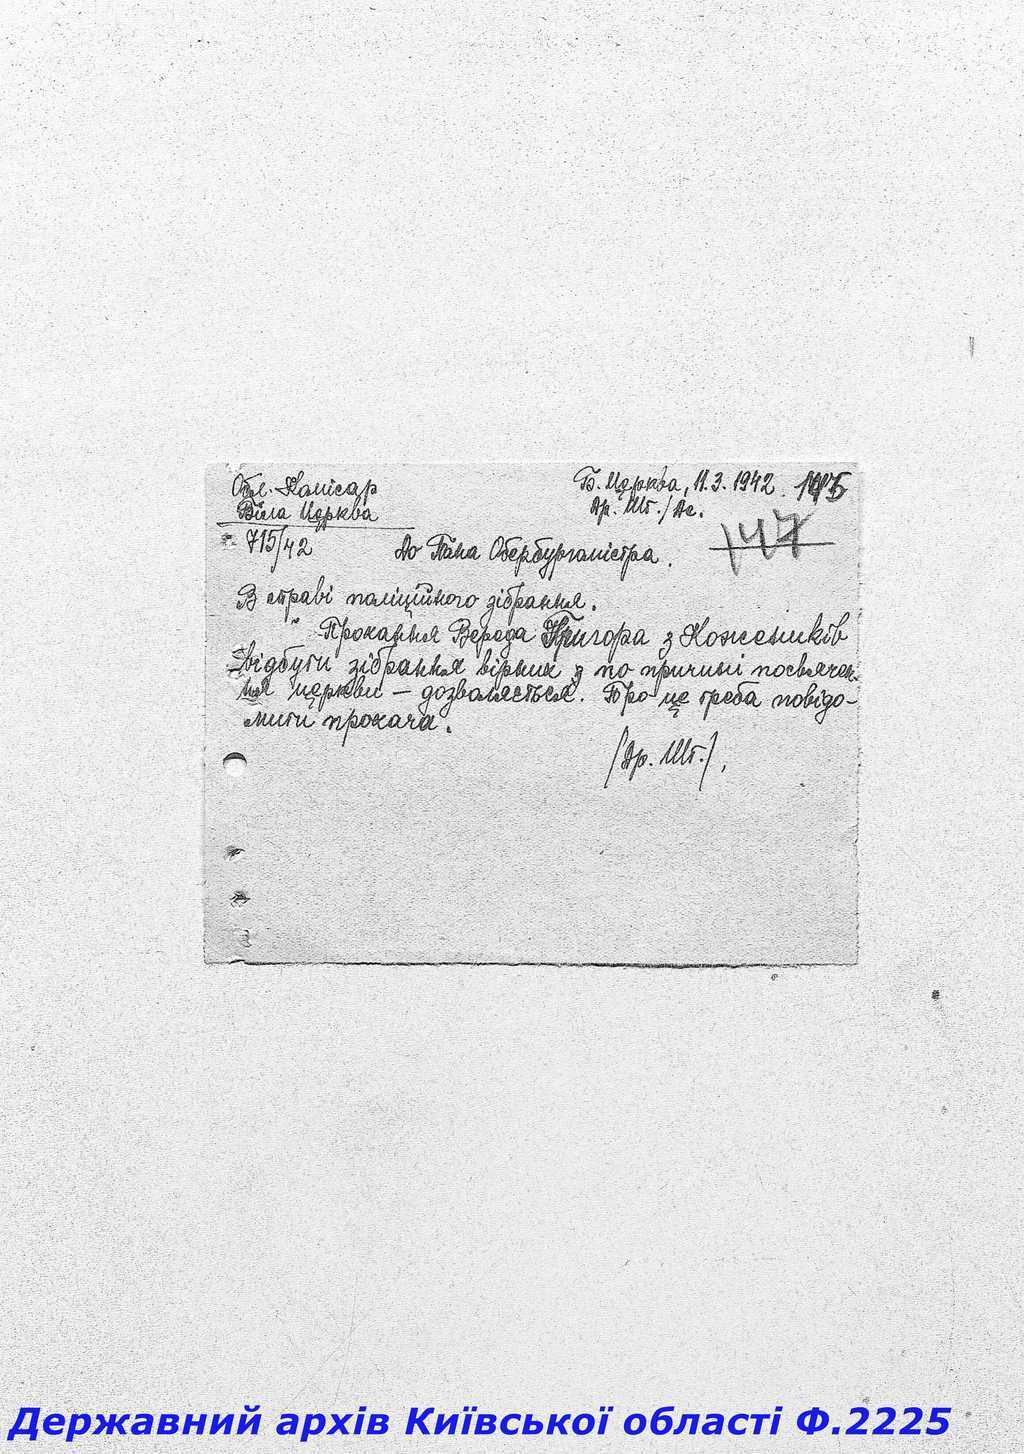 Обл. Комісар
Біла Церква
715/42
Б. Церква, 11.3.1942. 145
Др. Шт./Дс.
147
До Пана Обербургомістра.
В справі поліційного зібрання.
Прохання Верода Григора з Кожеників
відбути зібрання вірних з по причині посвячен-
ня церкви — дозволяється. Про це треба повідо-
мити прохача.
/Др. Шт./,
Державний архів Київської області Ф.2225